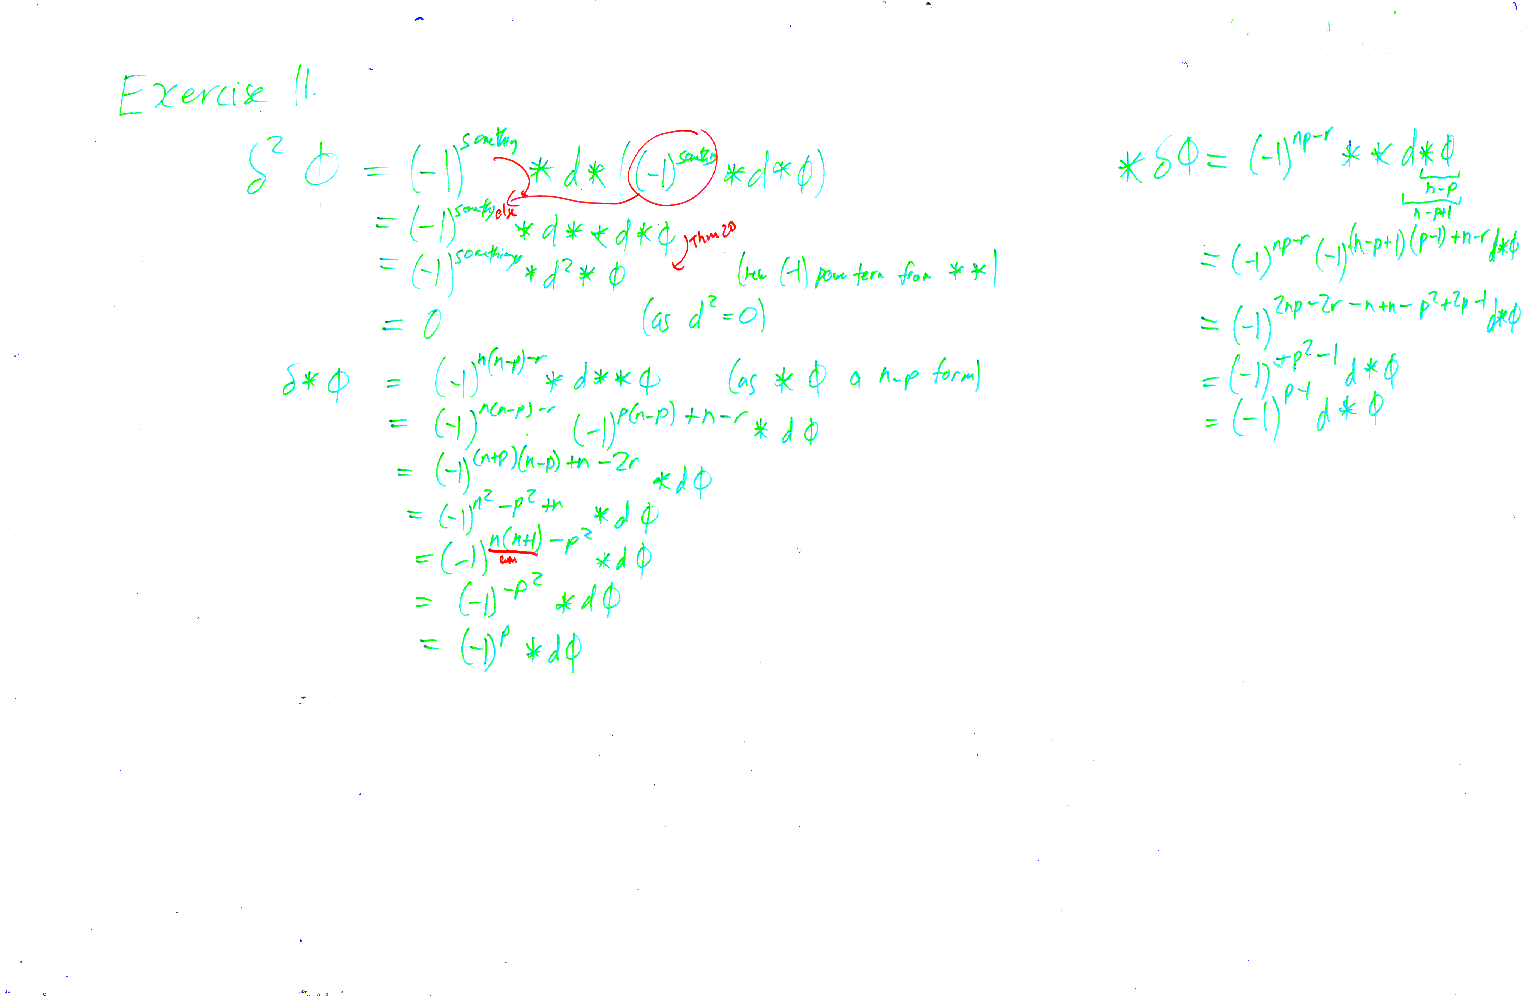 Exercise 11.
δ² φ = (-1)^something * d * ((-1)^something * d * φ)
= (-1)^something else * d * * d * φ
Thm 20
= (-1)^something * d² * φ (new (-1) power term from * *)
= 0 (as d² = 0)
δ * φ = (-1)^{n(n-p)-r} * d * * φ (as * φ a n-p form)
= (-1)^{n(n-p)-r} (-1)^{p(n-p)+n-r} * d φ
= (-1)^{(n+p)(n-p)+n-2r} * d φ
= (-1)^{n²-p²+n} * d φ
= (-1)^{n(n+1)-p²} * d φ
even
= (-1)^{-p²} * d φ
= (-1)^p * d φ
* δ φ = (-1)^{np-r} * * d * φ
n-p
n-p+1
= (-1)^{np-r} (-1)^{(n-p+1)(p-1)+n-r} d * φ
= (-1)^{2np-2r-n+n-p²+2p-1} d * φ
= (-1)^{-p²-1} d * φ
= (-1)^{p-1} d * φ